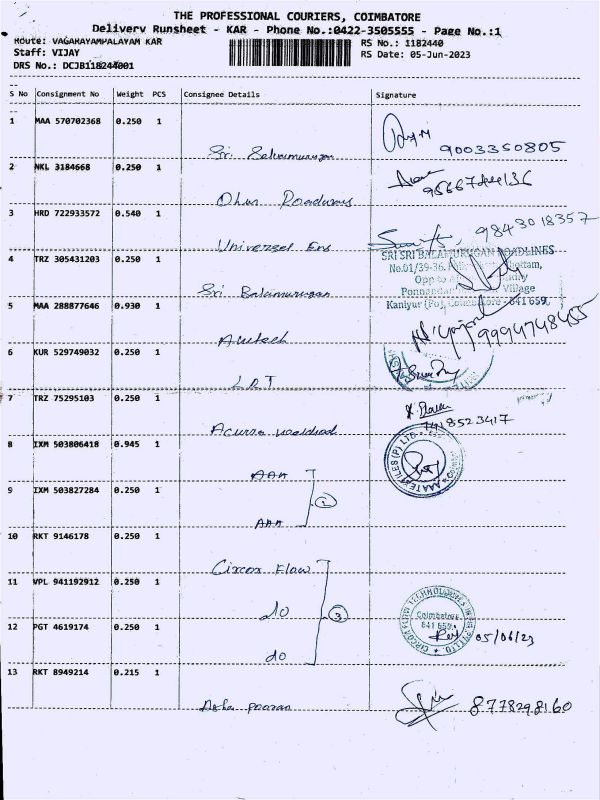 THE PROFESSIONAL COURIERS, COIMBATORE
Delivery Runsheet - KAR - Phone No.:0422-3505555 - Page No.:1
Route: VAGARAYAMPALAYAM KAR
RS No.: 1182440
Staff: VIJAY
RS Date: 05-Jun-2023
DRS No.: DCJB118244001
S No Consignment No Weight PCS Consignee Details Signature
1 MAA 570702368 0.250 1
Sri Selvamurugan 9003350805
2 NKL 3184668 0.250 1
Dhun Roadways
3 HRD 722933572 0.540 1
9843018357
Universel Ens
SRI SRI BALAMURUGAN ROADLINES
4 TRZ 305431203 0.250 1
No.01/39-36,
Sri Balamurugan
Village
Kaniyur (Po), Coimbatore - 641 659.
5 MAA 288877646 0.930 1
9994748455
6 KUR 529749032 0.250 1
LRT
7 TRZ 75295103 0.250 1
7418523417
8 IXM 503806418 0.945 1
AAM
9 IXM 503827284 0.250 1
2
AAM
10 RKT 9146178 0.250 1
Circor Flow
11 VPL 941192912 0.250 1
do
3
CIRCOR FLOW TECHNOLOGIES INDIA PVT LTD.
Coimbatore
641 659.
12 PGT 4619174 0.250 1
05/06/23
do
13 RKT 8949214 0.215 1
8778298160